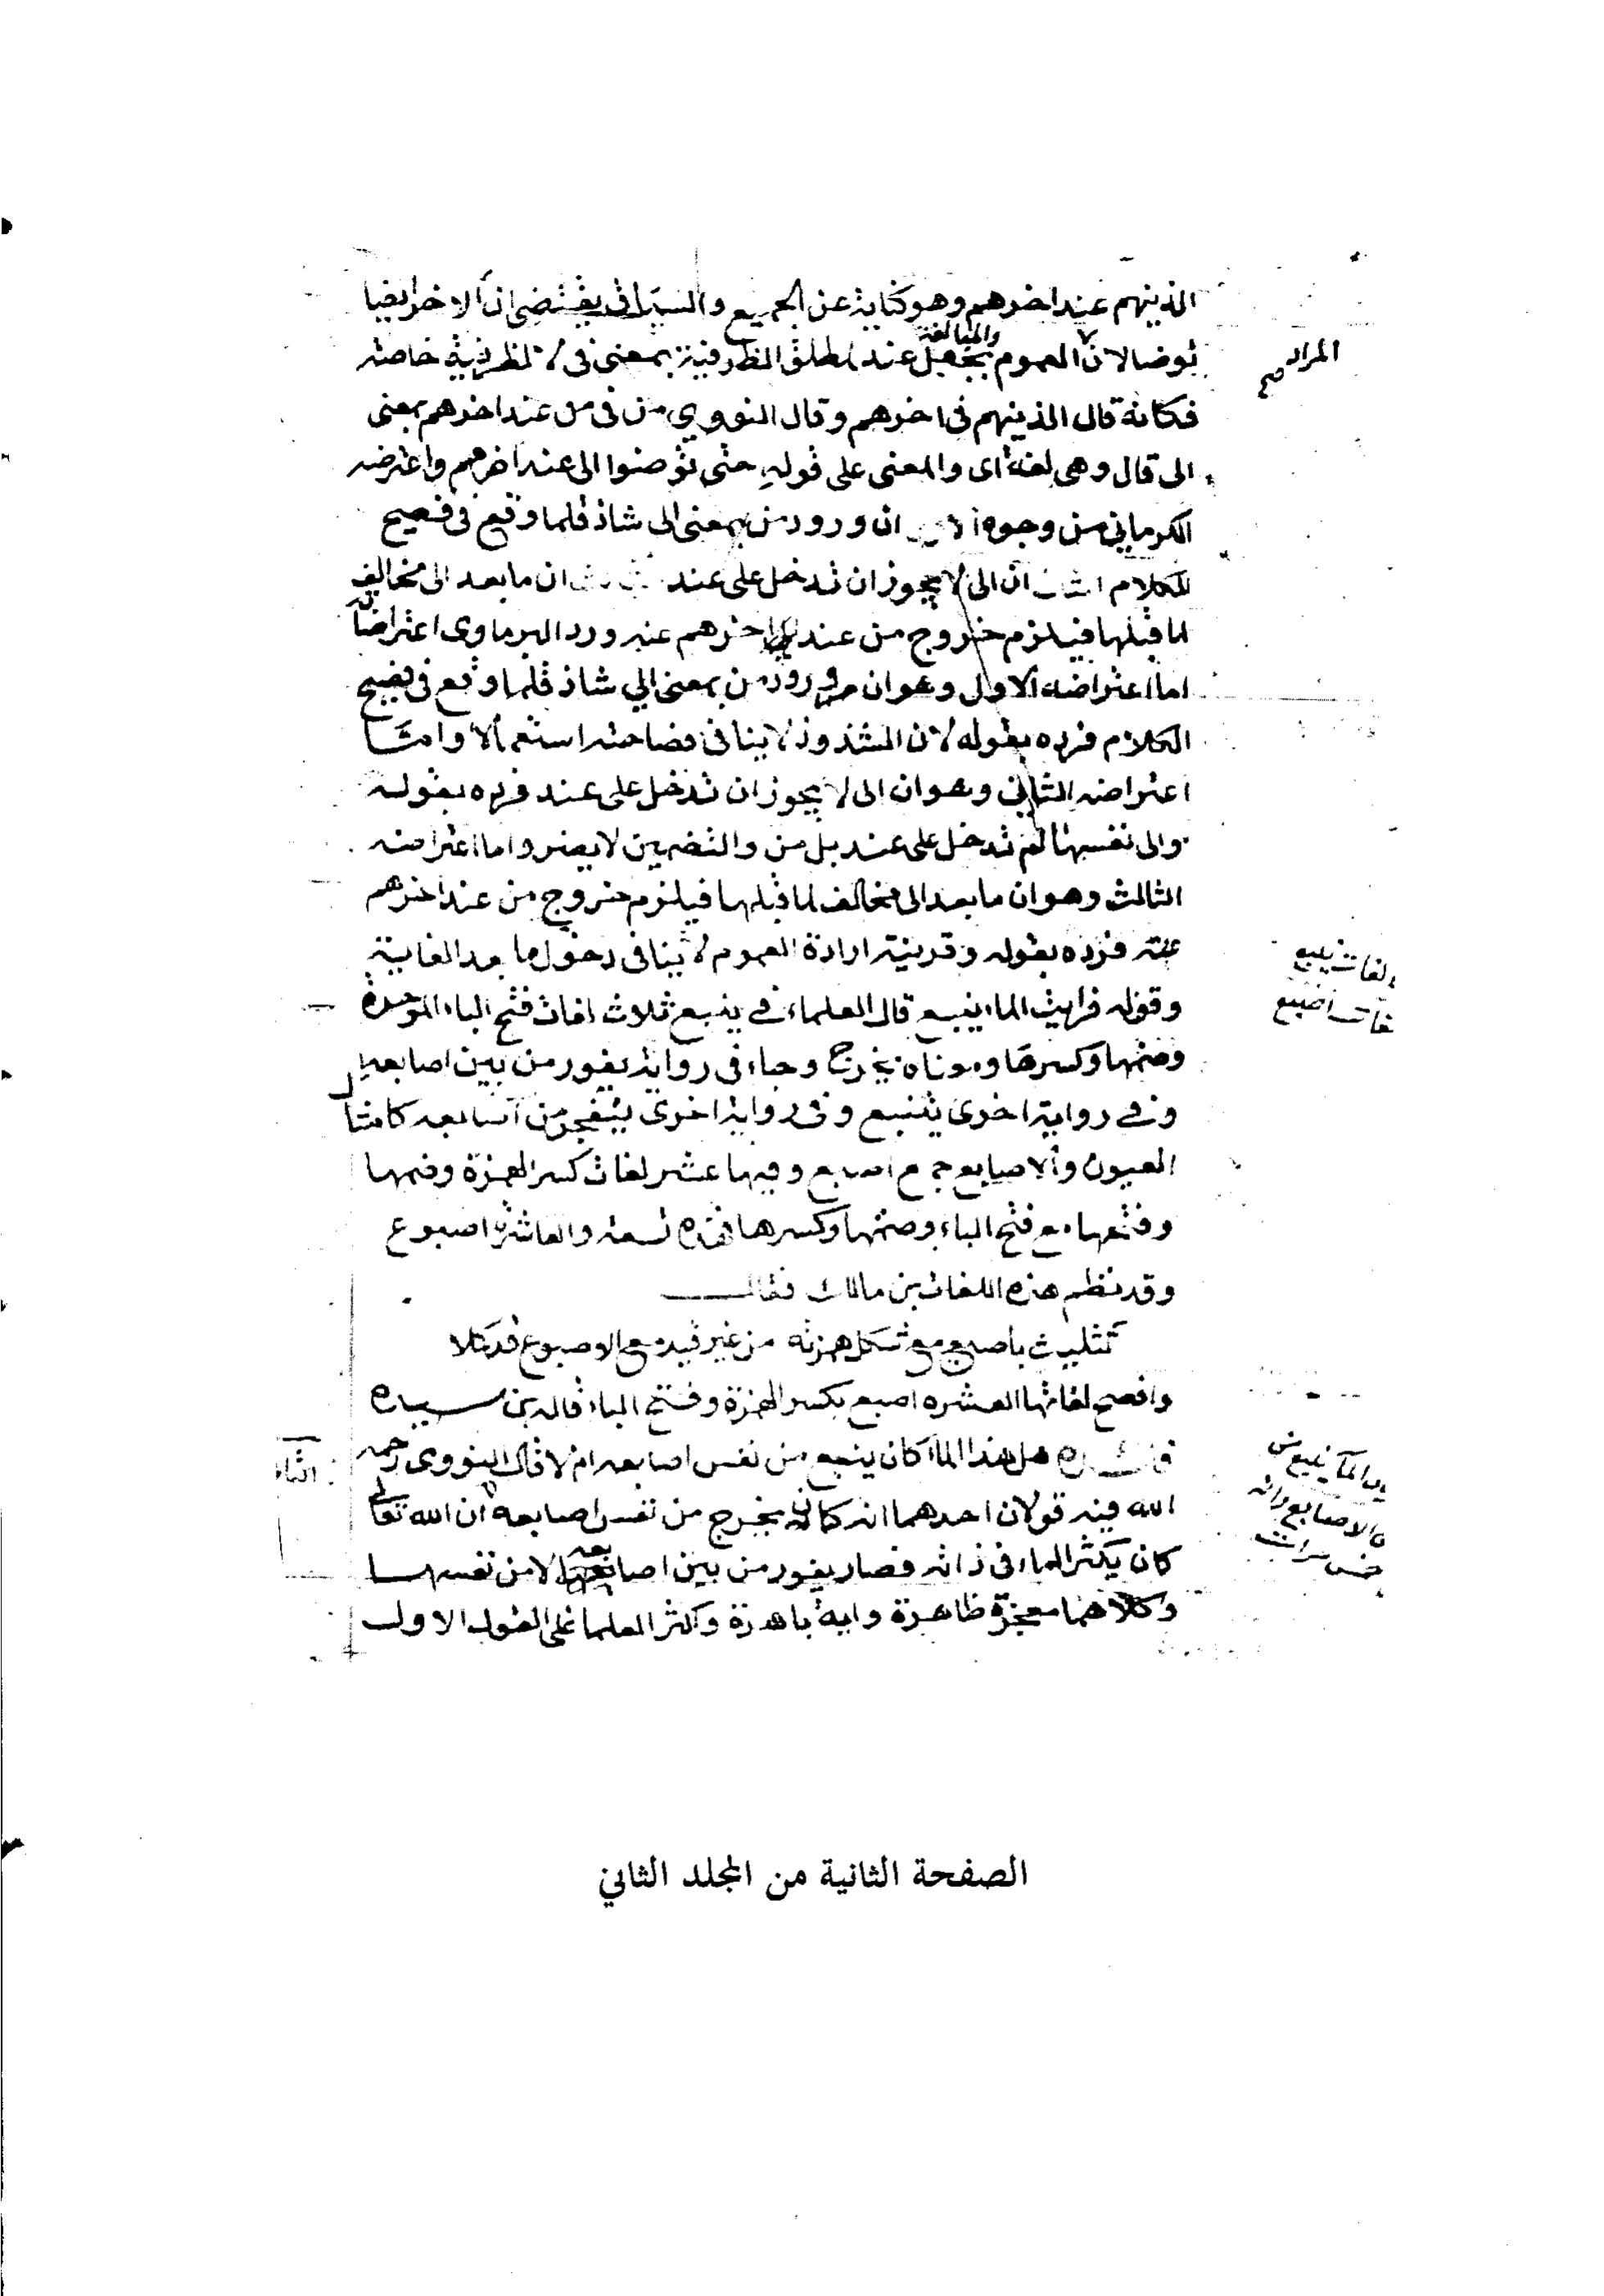 الذينهم عند اخرهم وهو كناية عن الجميع والسياق يقتضي ان الاخر ايضا
توضا لان العموم والمبالغة بجعل عند لمطلق الظرفية بمعنى في لا لظرفية خاصة
المراد صح
فكانه قال الذينهم في اخرهم وقال النووي من في من عند اخرهم بمعنى
الى قال وهي لغة اى والمعنى على قوله حتى توضئوا الى عند اخرهم واعترضه
الكرماني من وجوه ان ورود من بمعنى الى شاذ قلما وقع في فصيح
الكلام ان الى لا يجوز ان تدخل على عند ان ما بعد الى مخالف
لما قبلها فيلزم خروج من عند اخرهم عنه ورد البرماوى اعتراضاته
اما اعتراضه الاول وهو ان ورود من بمعنى الي شاذ قلما وقع في فصيح
الكلام فرده بقوله لان الشذوذ لا ينافي فصاحته استعمالا واما
اعتراضه الثاني وهو ان الى لا يجوز ان تدخل على عند فرده بقوله
والى نفسها لم تدخل على عند بل من والتضمين لا يضر واما اعتراضه
الثالث وهو ان ما بعد الى مخالف لما قبلها فيلزم خروج من عند اخرهم
عنه فرده بقوله وقرينة ارادة العموم لا ينافي دخول ما بعد الغاية
وقوله فرايت الماء ينبع قال العلماء في ينبع ثلاث لغات فتح الباء الموحدة
لغات ينبع
لغات اصبع
وضمها وكسرها ومعناه يخرج وجاء في رواية يفور من بين اصابعه
وفي رواية اخرى ينبع وفي رواية اخرى يتفجر من اصابعه كامثال
العيون والاصابع جمع اصبع وفيها عشر لغات كسر الهمزة وضمها
وفتحها مع فتح الباء وضمها وكسرها فهذه تسعة والعاشرة اصبوع
وقد نظم هذه اللغات بن مالك فقال
تثليث با صبع مع شكل همزته من غير قيد مع الاصبوع قد كملا
وافصح لغاتها العشره اصبع بكسر الهمزة وفتح الباء قاله بن سيده
هل هذا الماء كان ينبع من نفس اصابعه ام لا قال النووى رحمه
الماء ينبع من
الاصابع وانه
مرات
الله فيه قولان احدهما انه كان يخرج من نفس اصابعه ان الله تعالى
الثاني
كان يكثر الماء في ذاته فصار يفور من بين اصابعه لا من نفسها
وكلاهما معجزة ظاهرة واية باهرة واكثر العلما على القول الاول
الصفحة الثانية من المجلد الثاني